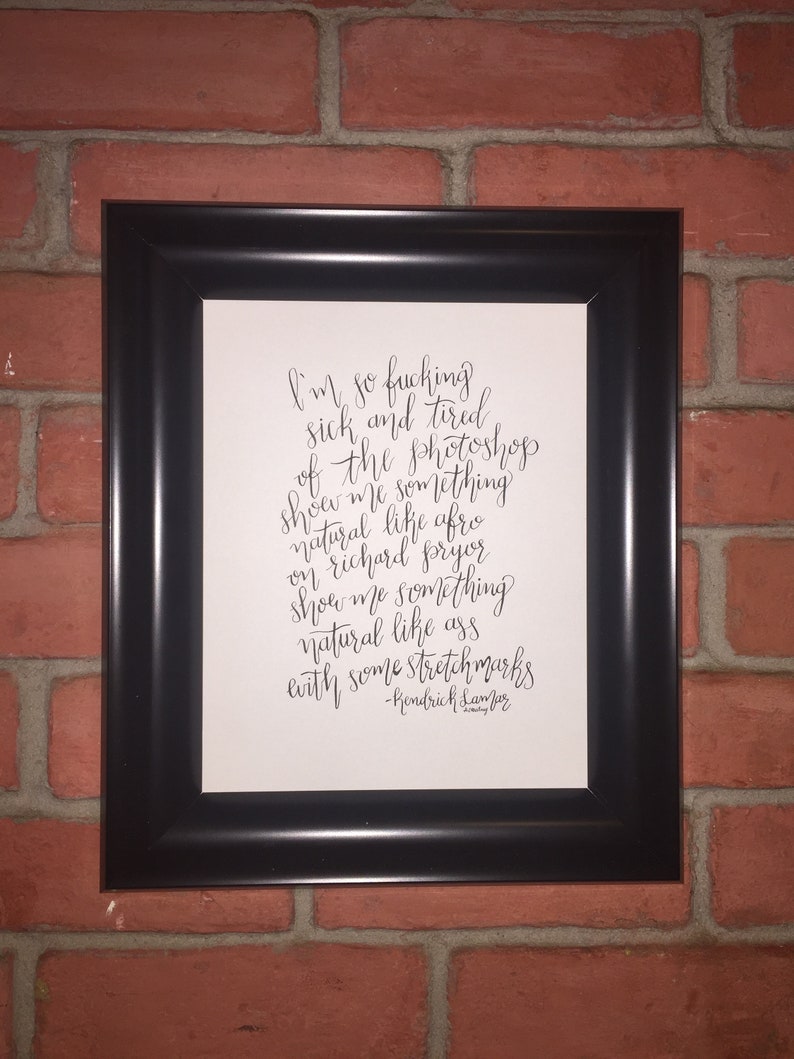 I'm so fucking
sick and tired
of the photoshop
show me something
natural like afro
on richard pryor
show me something
natural like ass
with some stretchmarks
-Kendrick Lamar